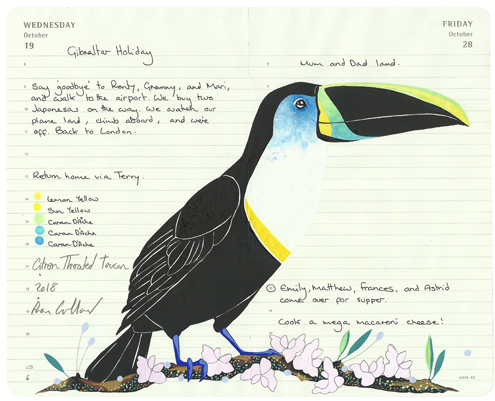 WEDNESDAY
October
19
Gibraltar Holiday
Say 'goodbye' to Henty, Grammy, and Mari,
and walk to the airport. We buy two
Japonesas on the way. We watch our
plane land, climb aboard, and we're
off. Back to London.
Return home via Terry.
Lemon Yellow
Sun Yellow
Caran D'Ache
Caran D'Ache
Caran D'Ache
Citron Throated Toucan
2018
FRIDAY
October
28
Mum and Dad land.
Emily, Matthew, Frances, and Astrid
come over for supper.
Cook a mega macaroni cheese!
week 43